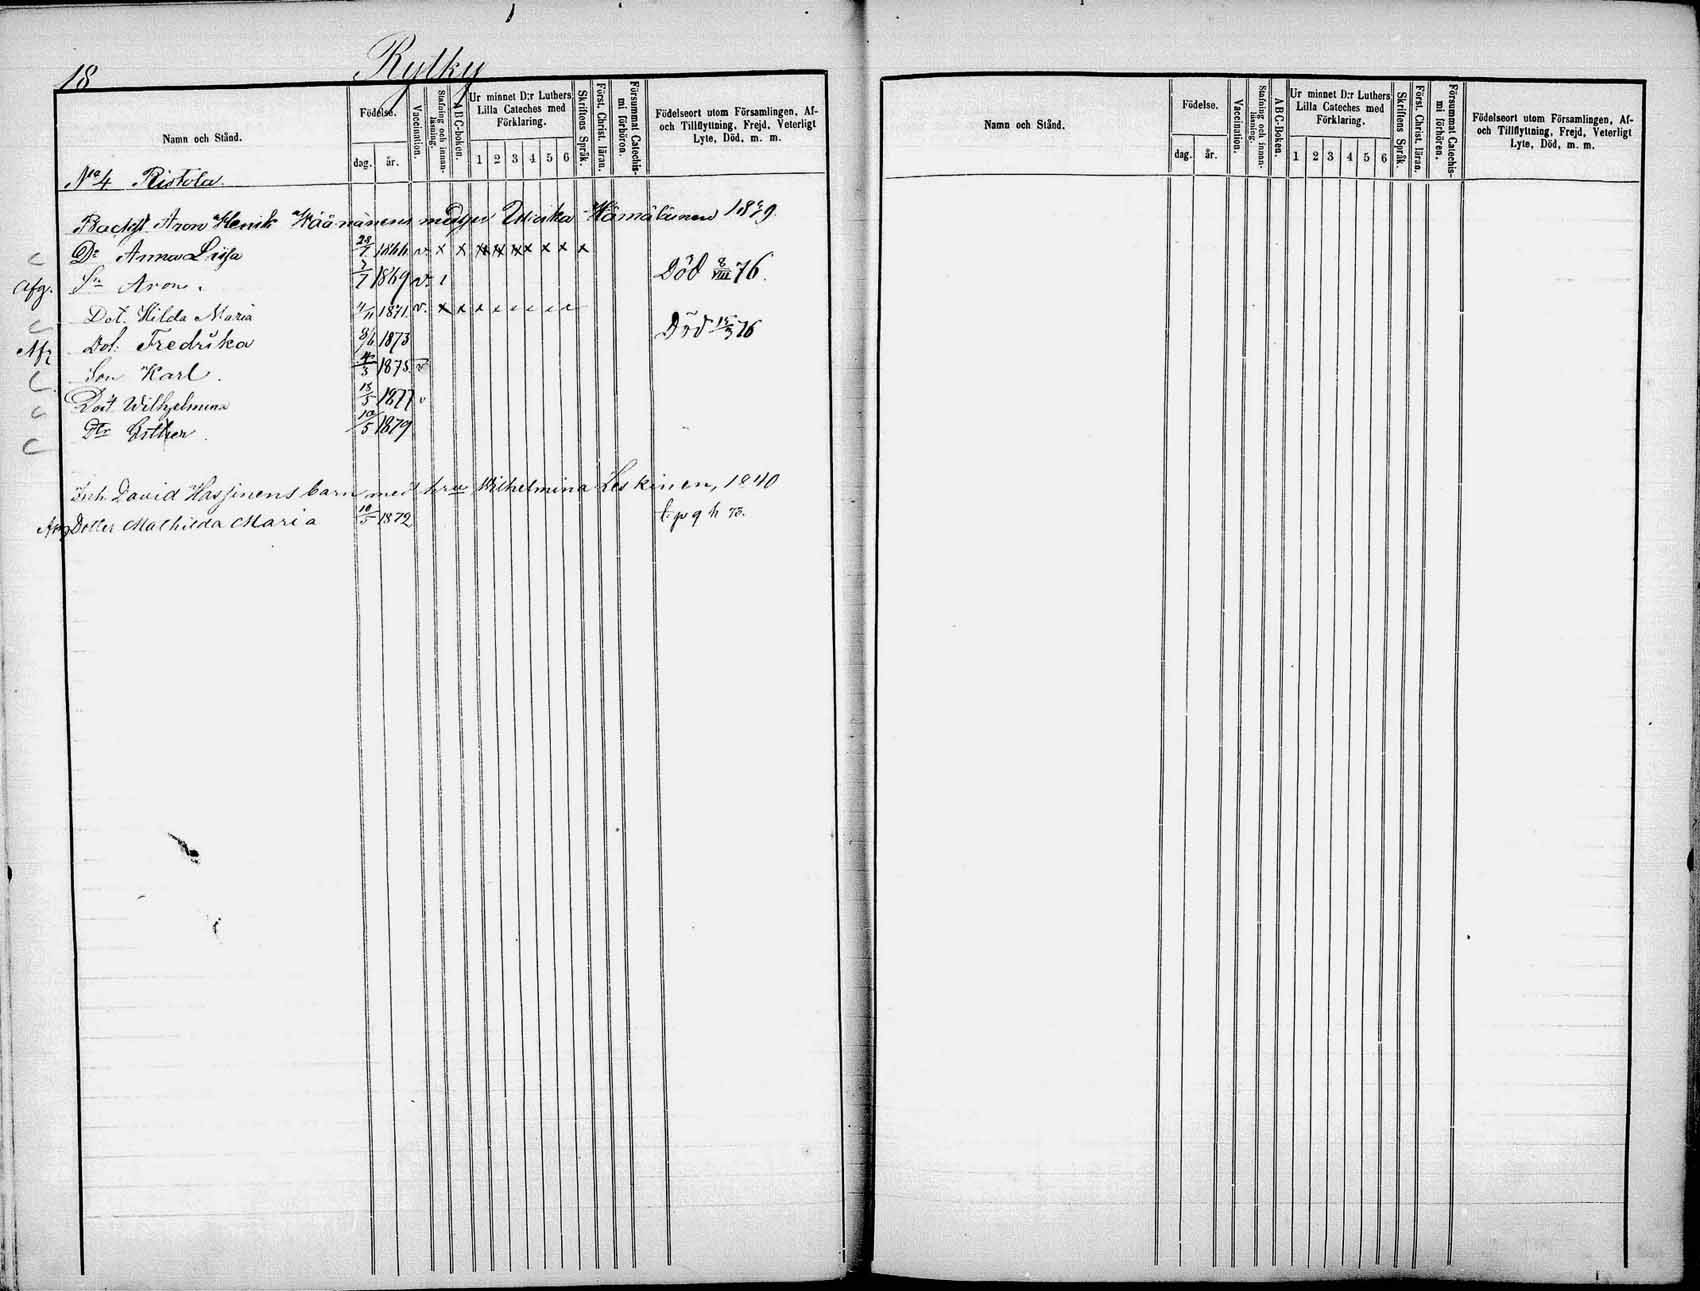 18 Rytky
Namn och Stånd.
Födelse.
dag. år.
Vaccination.
Stafning och innan-läsning.
ABC-boken.
Ur minnet D:r Luthers Lilla Cateches med Förklaring.
1 2 3 4 5 6
Skriftens Språk.
Först. Christ. läran.
Försummat Catechis-mi förhören.
Födelseort utom Församlingen, Af- och Tillflyttning, Frejd, Veterligt Lyte, Död, m. m.
No 4 Ristola.
Aron Henrik Väänänens med Ulrika Hämäläinen
Dr Anna Lisa v. x x x x x x x x x
afg. Sn Aron. 1869 v. Död 8/VIII 76.
Dot. Hilda Maria 1871 v. x x x
Afg Dot. Fredrika 8/6 1873 Död 76
Son Karl. 1875 v
Dott Wilhelmina 1877 v
Dtr Esther. 10/5 1879
Inh. David Hassinens barn med hru Wilhelmina Leskinen, 1840
Afg Dotter Mathilda Maria 10/5 1872
Namn och Stånd.
Födelse.
dag. år.
Vaccination.
Stafning och innan-läsning.
ABC-Boken.
Ur minnet D:r Luthers Lilla Cateches med Förklaring.
1 2 3 4 5 6
Skriftens Språk.
Först. Christ. läran.
Försummat Catechis-mi förhören.
Födelseort utom Församlingen, Af- och Tillflyttning, Frejd, Veterligt Lyte, Död, m. m.